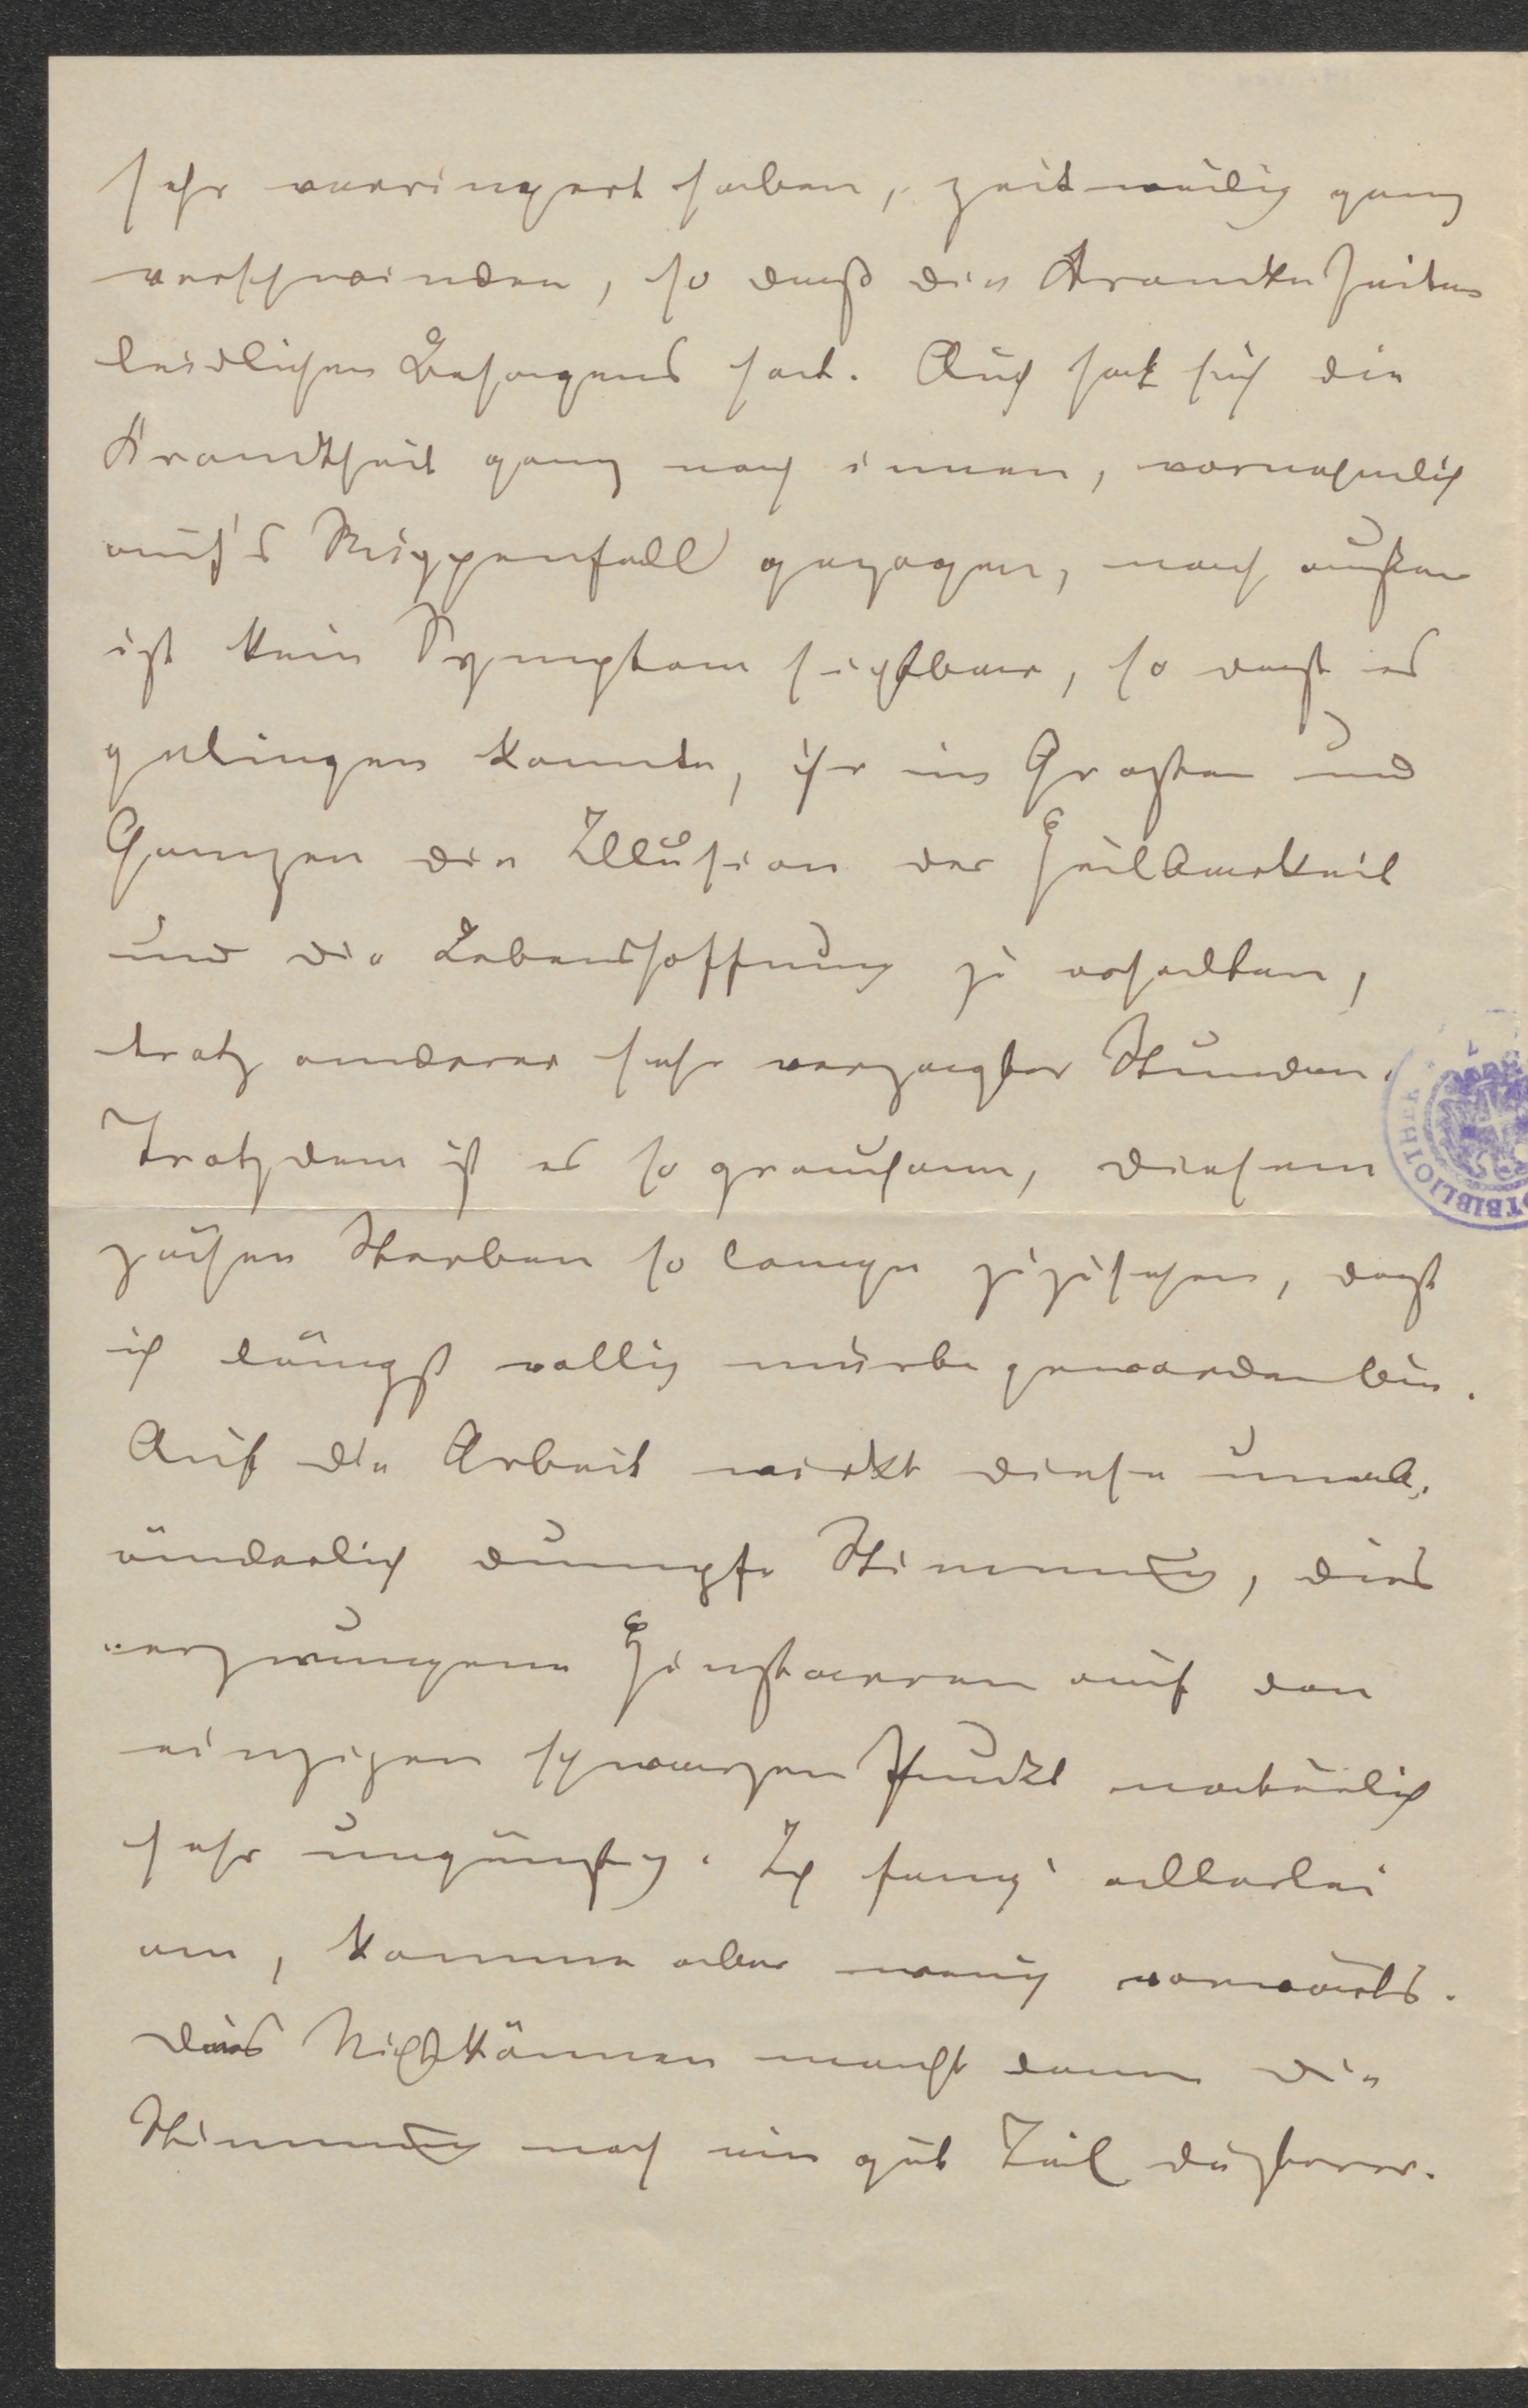 sehr verringert haben, zeitweilig ganz
verschwinden, so daß die Kranke Zeiten
leidlichen Behagens hat. Auch hat sich die
Krankheit ganz nach innen, vornehmlich
auf's Rippenfell gezogen, nach außen
ist kein Symptom sichtbar, so daß es
gelingen konnte, ihr im Großen und
Ganzen die Illusion der Heilbarkeit
und die Lebenshoffnung zu erhalten,
trotz anderer sehr verzagter Stunden.
Trotzdem ist es so grausam, diesem
zähen Sterben so lange zuzusehen, daß
ich längst völlig mürbe geworden bin.
Auf die Arbeit wirkt diese unab-
änderlich dumpfe Stimmung, dies
erzwungene Hinstarren auf den
einzigen schwarzen Punkt natürlich
sehr ungünstig. Ich fang' allerlei
an, komme aber wenig vorwärts.
Das Nichtkönnen macht dann die
Stimmung noch ein gut Teil düsterer.